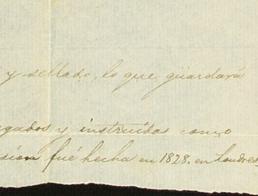 y sellado, lo que guardará
gados y instruidos como
sión fué hecha en 1828. en Londres